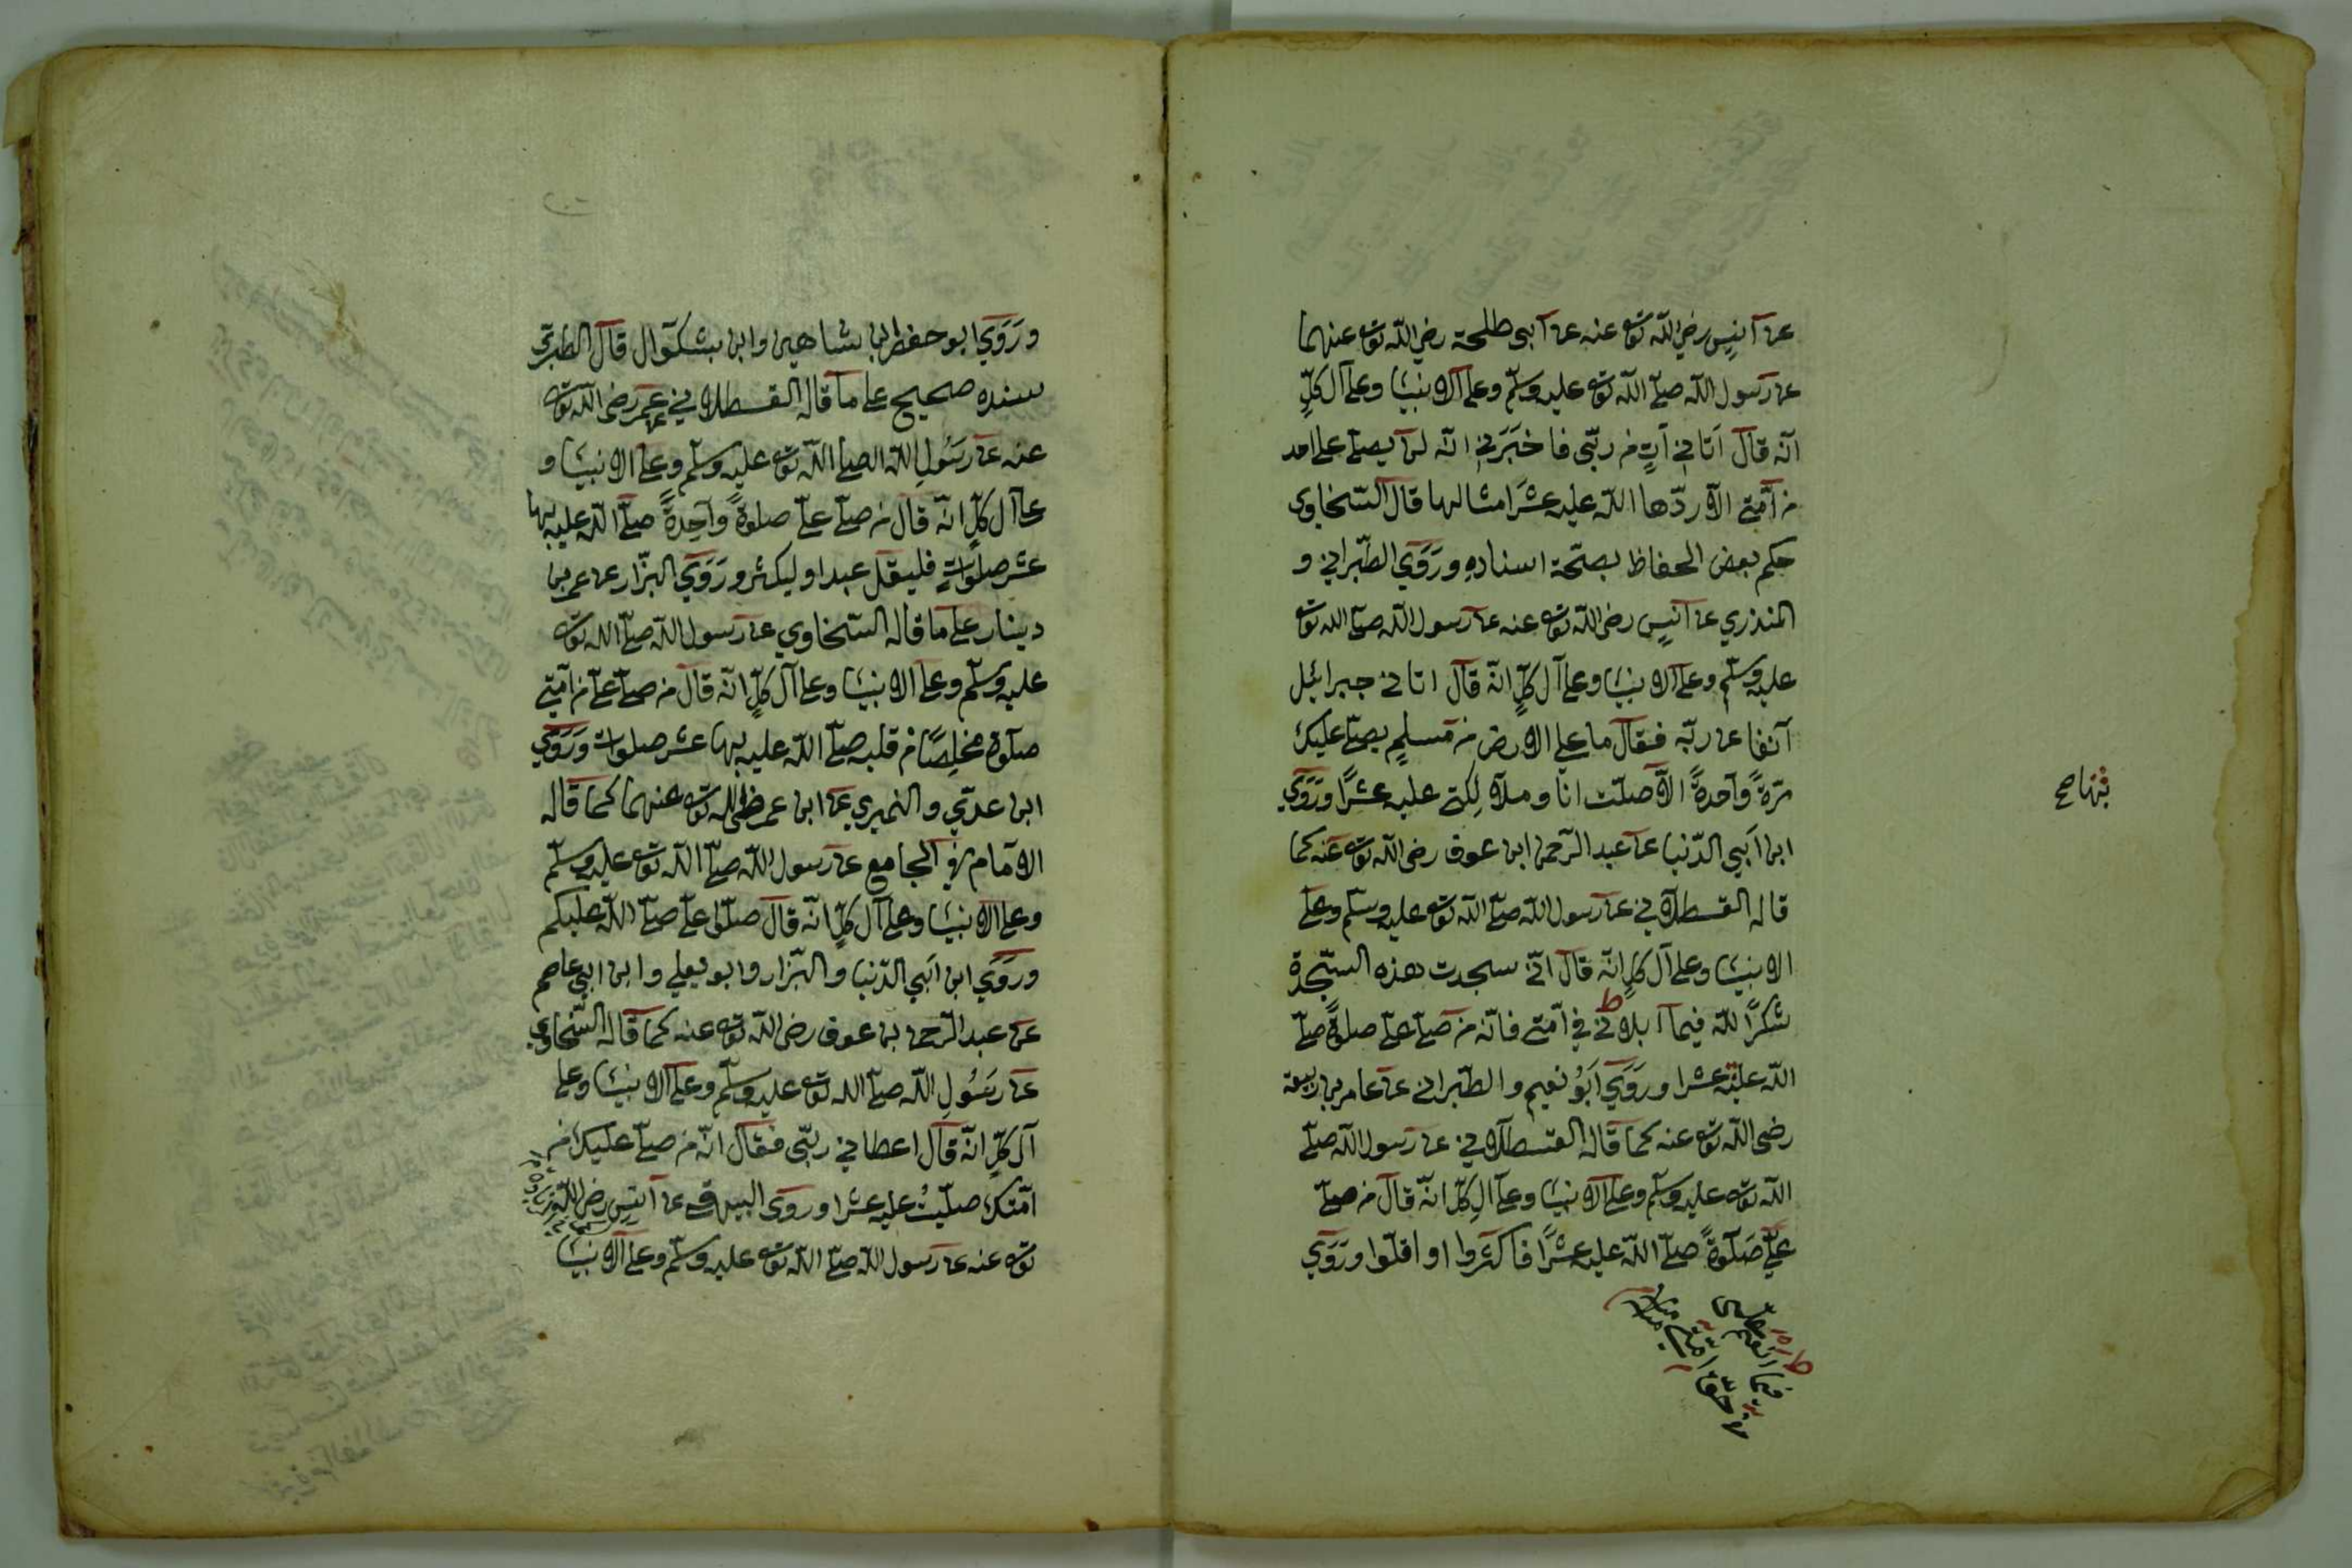 عن أنس رضي الله تع عنه عن أبي طلحة رضي الله تع عنهما
عن رسول الله صلّى الله تع عليه وسلّم وعلى الانبيا وعلى آل كلٍّ
انّه قال أتاني آتٍ من ربّي فاخبرني انّه لن يصلّي على احد
من أمّتي الّا ردّها الله عليه عشر امثالها قال السّخاوي
حكم بعض الحفاظ بصحّة اسناده وروى الطّبراني و
المنذري عن أنس رضي الله تع عنه عن رسول الله صلّى الله تع
عليه وسلّم وعلى الانبيا وعلى آل كلٍّ انّه قال اتاني جبرائيل
آنفا عن ربّه فقال ما على الارض من مسلم يصلّي عليك
مرّةً واحدةً الّا صلّيت انا وملائكتي عليه عشرًا وروى
ابن أبي الدّنيا عن عبد الرّحمن ابن عوف رضي الله تع عنه كما
قاله القسطلاني عن رسول الله صلّى الله تع عليه وسلّم وعلى
الانبيا وعلى آل كلٍّ انّه قال انّي سجدت هذه السّجدة
شكرًا لله فيما ابلاني في أمّتي فانّه من صلّى عليّ صلوةً صلّى
الله عليه عشرا وروى أبو نعيم والطّبراني عن عامر بن ربيعة
رضي الله تع عنه كما قاله القسطلاني عن رسول الله صلّى
الله تع عليه وسلّم وعلى الانبيا وعلى آل كلٍّ انّه قال من صلّى
عليّ صلوةً صلّى الله عليه عشرًا فاكثروا او اقلّوا وروى
فيما انعم عليّ
حقّ امّتي
وروى ابو حفص ابن شاهين وابن بشكوال قال الطبري
سنده صحيح على ما قاله القسطلاني عن عمر رضي الله تع
عنه عن رسول الله صلى الله تع عليه وسلّم وعلى الانبيا و
على آل كلٍّ انّه قال من صلّى عليّ صلوةً واحدةً صلّى الله عليه بها
عشر صلوات فليقل عبد او ليكثر وروى البزّار عن عمر بن
دينار على ما قاله السّخاوي عن رسول الله صلّى الله تع
عليه وسلّم وعلى الانبيا وعلى آل كلٍّ انّه قال من صلّى عليّ من أمّتي
صلوة مخلِصًا من قلبه صلّى الله عليه بها عشر صلوات وروى
ابن عدي والنميري عن ابن عمر رضي الله تع عنهما كما قاله
الامام في الجامع عن رسول الله صلّى الله تع عليه وسلّم
وعلى الانبيا وعلى آل كلٍّ انّه قال صلّوا عليّ صلّى الله عليكم
وروى ابن أبي الدّنيا والبزّار وابو يعلي وابن ابي عاصم
عن عبد الرّحمن بن عوف رضي الله تع عنه كما قاله السّخاوي
عن رسول الله صلّى الله تع عليه وسلّم وعلى الانبيا وعلى
آل كلٍّ انّه قال اعطاني ربّي فقال انّه من صلّى عليك من
امّتك صلّيتُ عليه عشرا وروى البيهقي عن أنس رضي الله
تع عنه عن رسول الله صلّى الله تع عليه وسلّم وعلى الانبيا